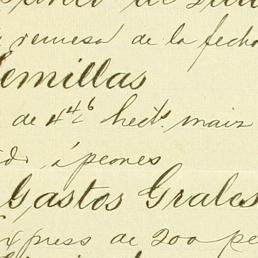 remesa de la fecha
Semillas
de 4 4/6 hects. maiz
á peones
Gastos Grales
Express de 200 pe